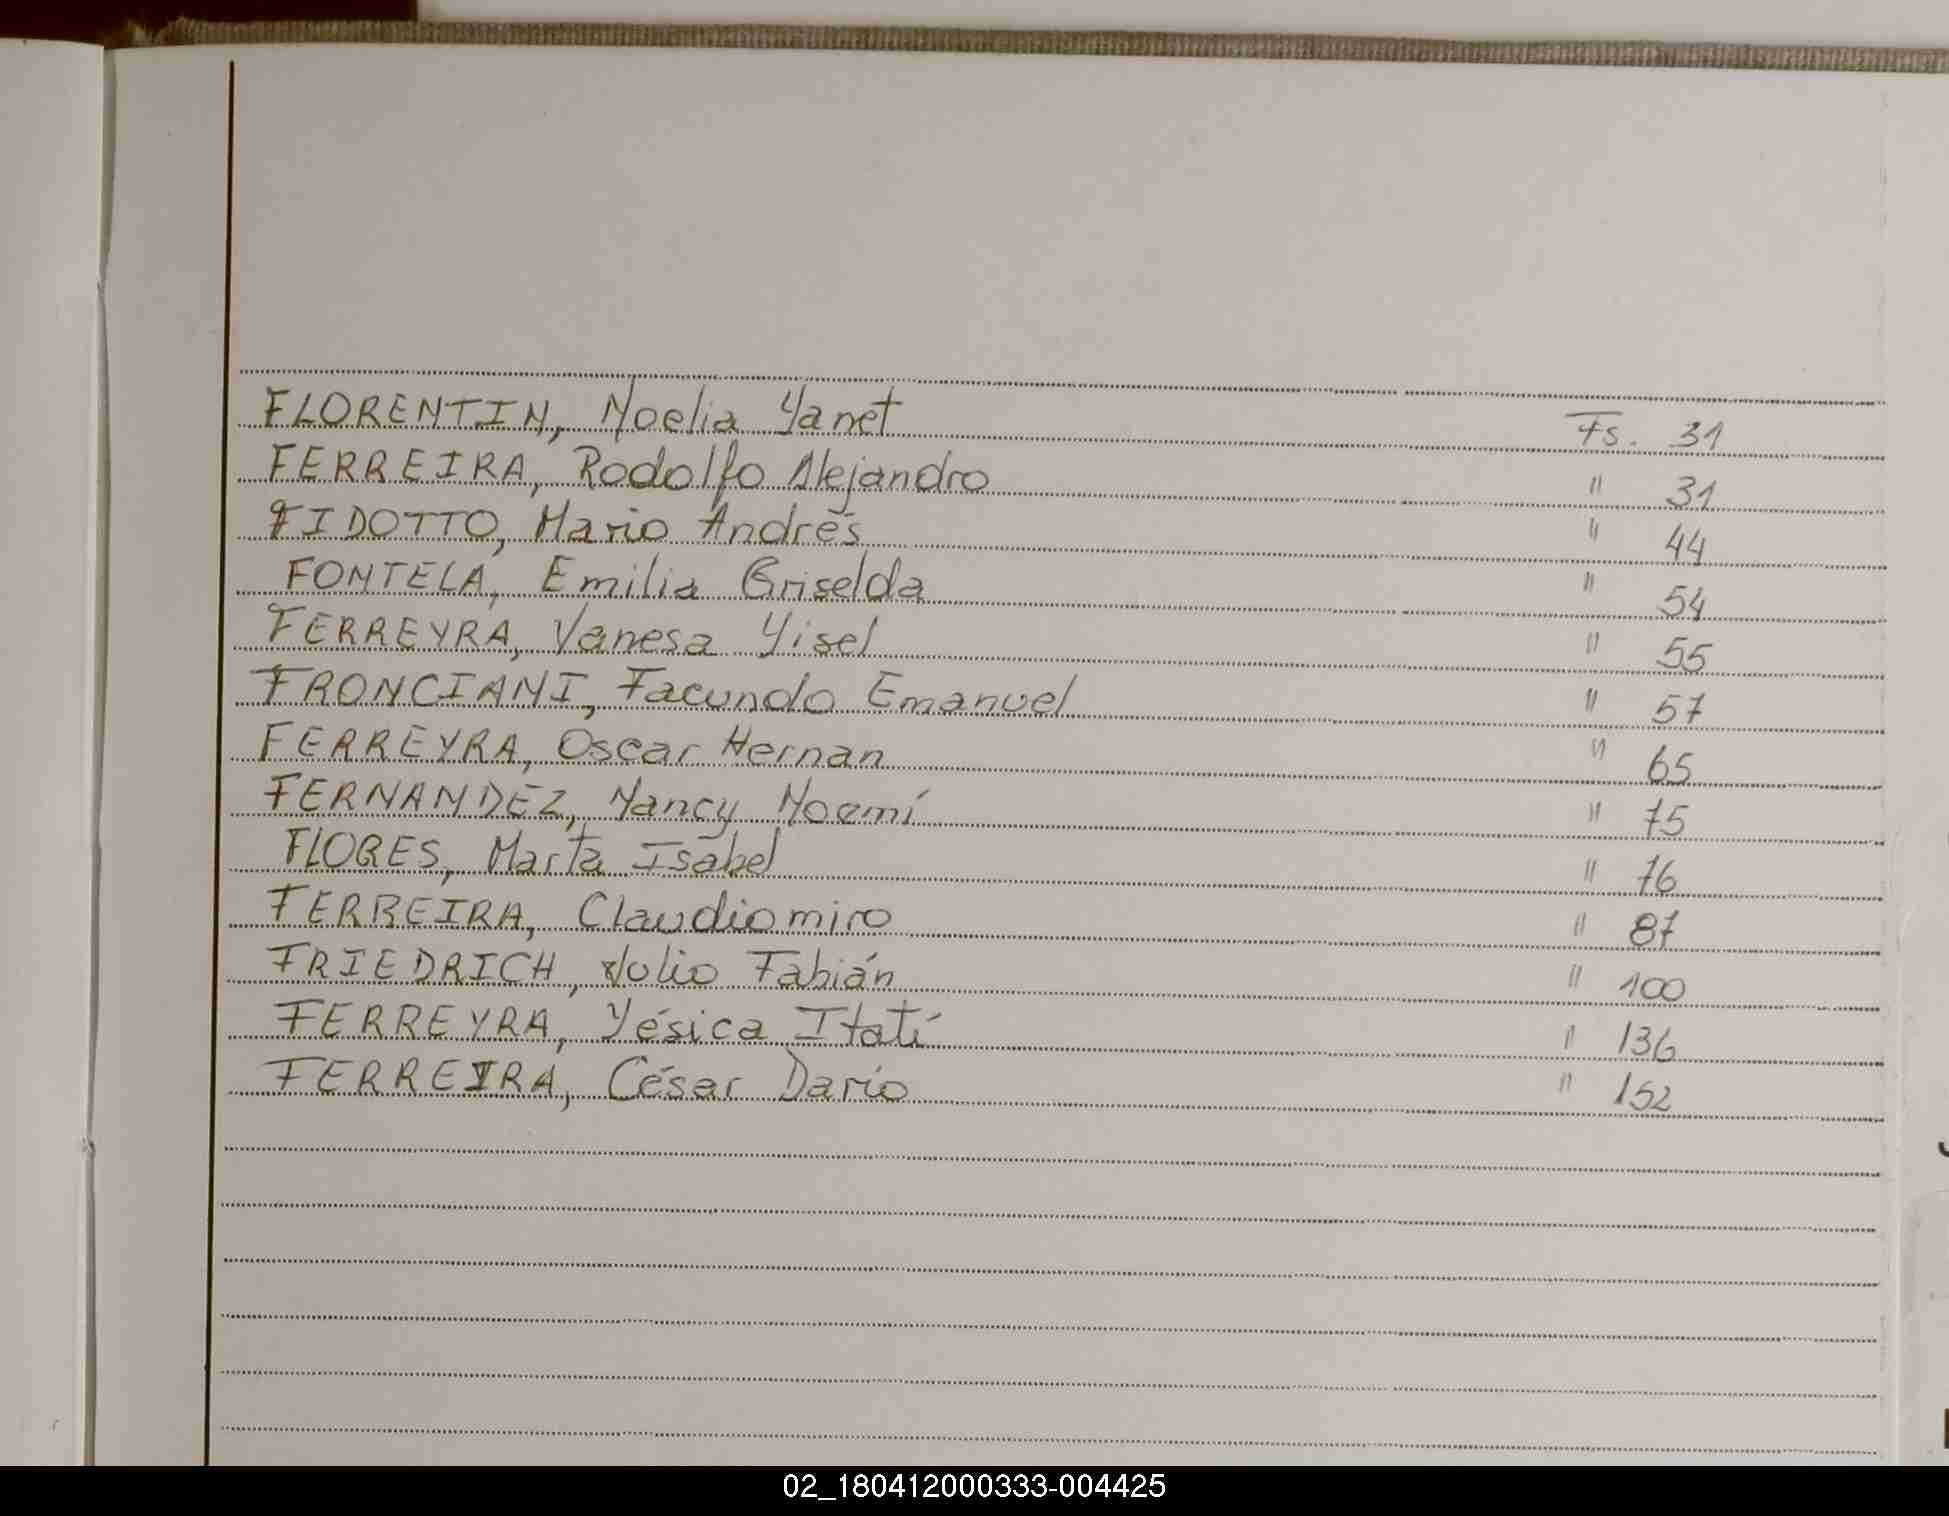 FLORENTIN, Noelia Yanet Fs. 31
FERREIRA, Rodolfo Alejandro " 31
FIDOTTO, Mario Andrés " 44
FONTELA, Emilia Griselda " 54
FERREYRA, Vanesa Yisel " 55
FRONCIANI, Facundo Emanuel " 57
FERREYRA, Oscar Hernan " 65
FERNANDEZ, Nancy Noemí " 75
FLORES, Marta Isabel " 76
FERREIRA, Claudiomiro " 87
FRIEDRICH, Julio Fabián " 100
FERREYRA, Yésica Itatí " 136
FERREIRA, César Darío " 152
02_180412000333-004425